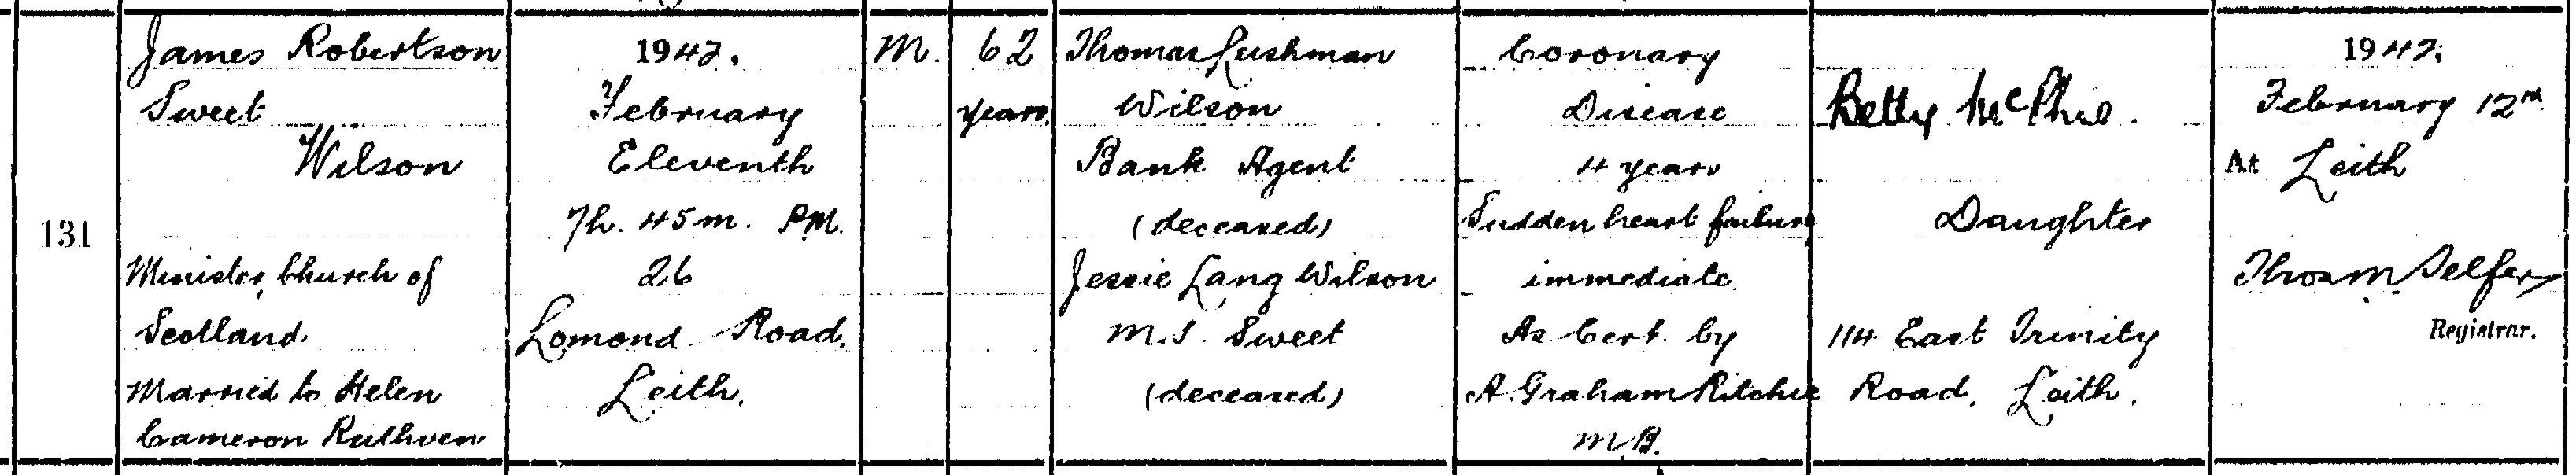 131
James Robertson
Sweet
Wilson
Minister, Church of
Scotland.
Married to Helen
Cameron Ruthven
1942.
February
Eleventh
7h. 45m. P.M.
26
Lomond Road,
Leith.
M.
62
years
Thomas Cushman
Wilson
Bank Agent
(deceased)
Jessie Lang Wilson
M.S. Sweet
(deceased)
Coronary
Disease
4 years
Sudden heart failure
immediate
As Cert. by
A. Graham Ritchie
M.B.
Betty McPhie.
Daughter
114 East Trinity
Road, Leith.
1942.
February 12th
At Leith
Thos M. Telfer
Registrar.